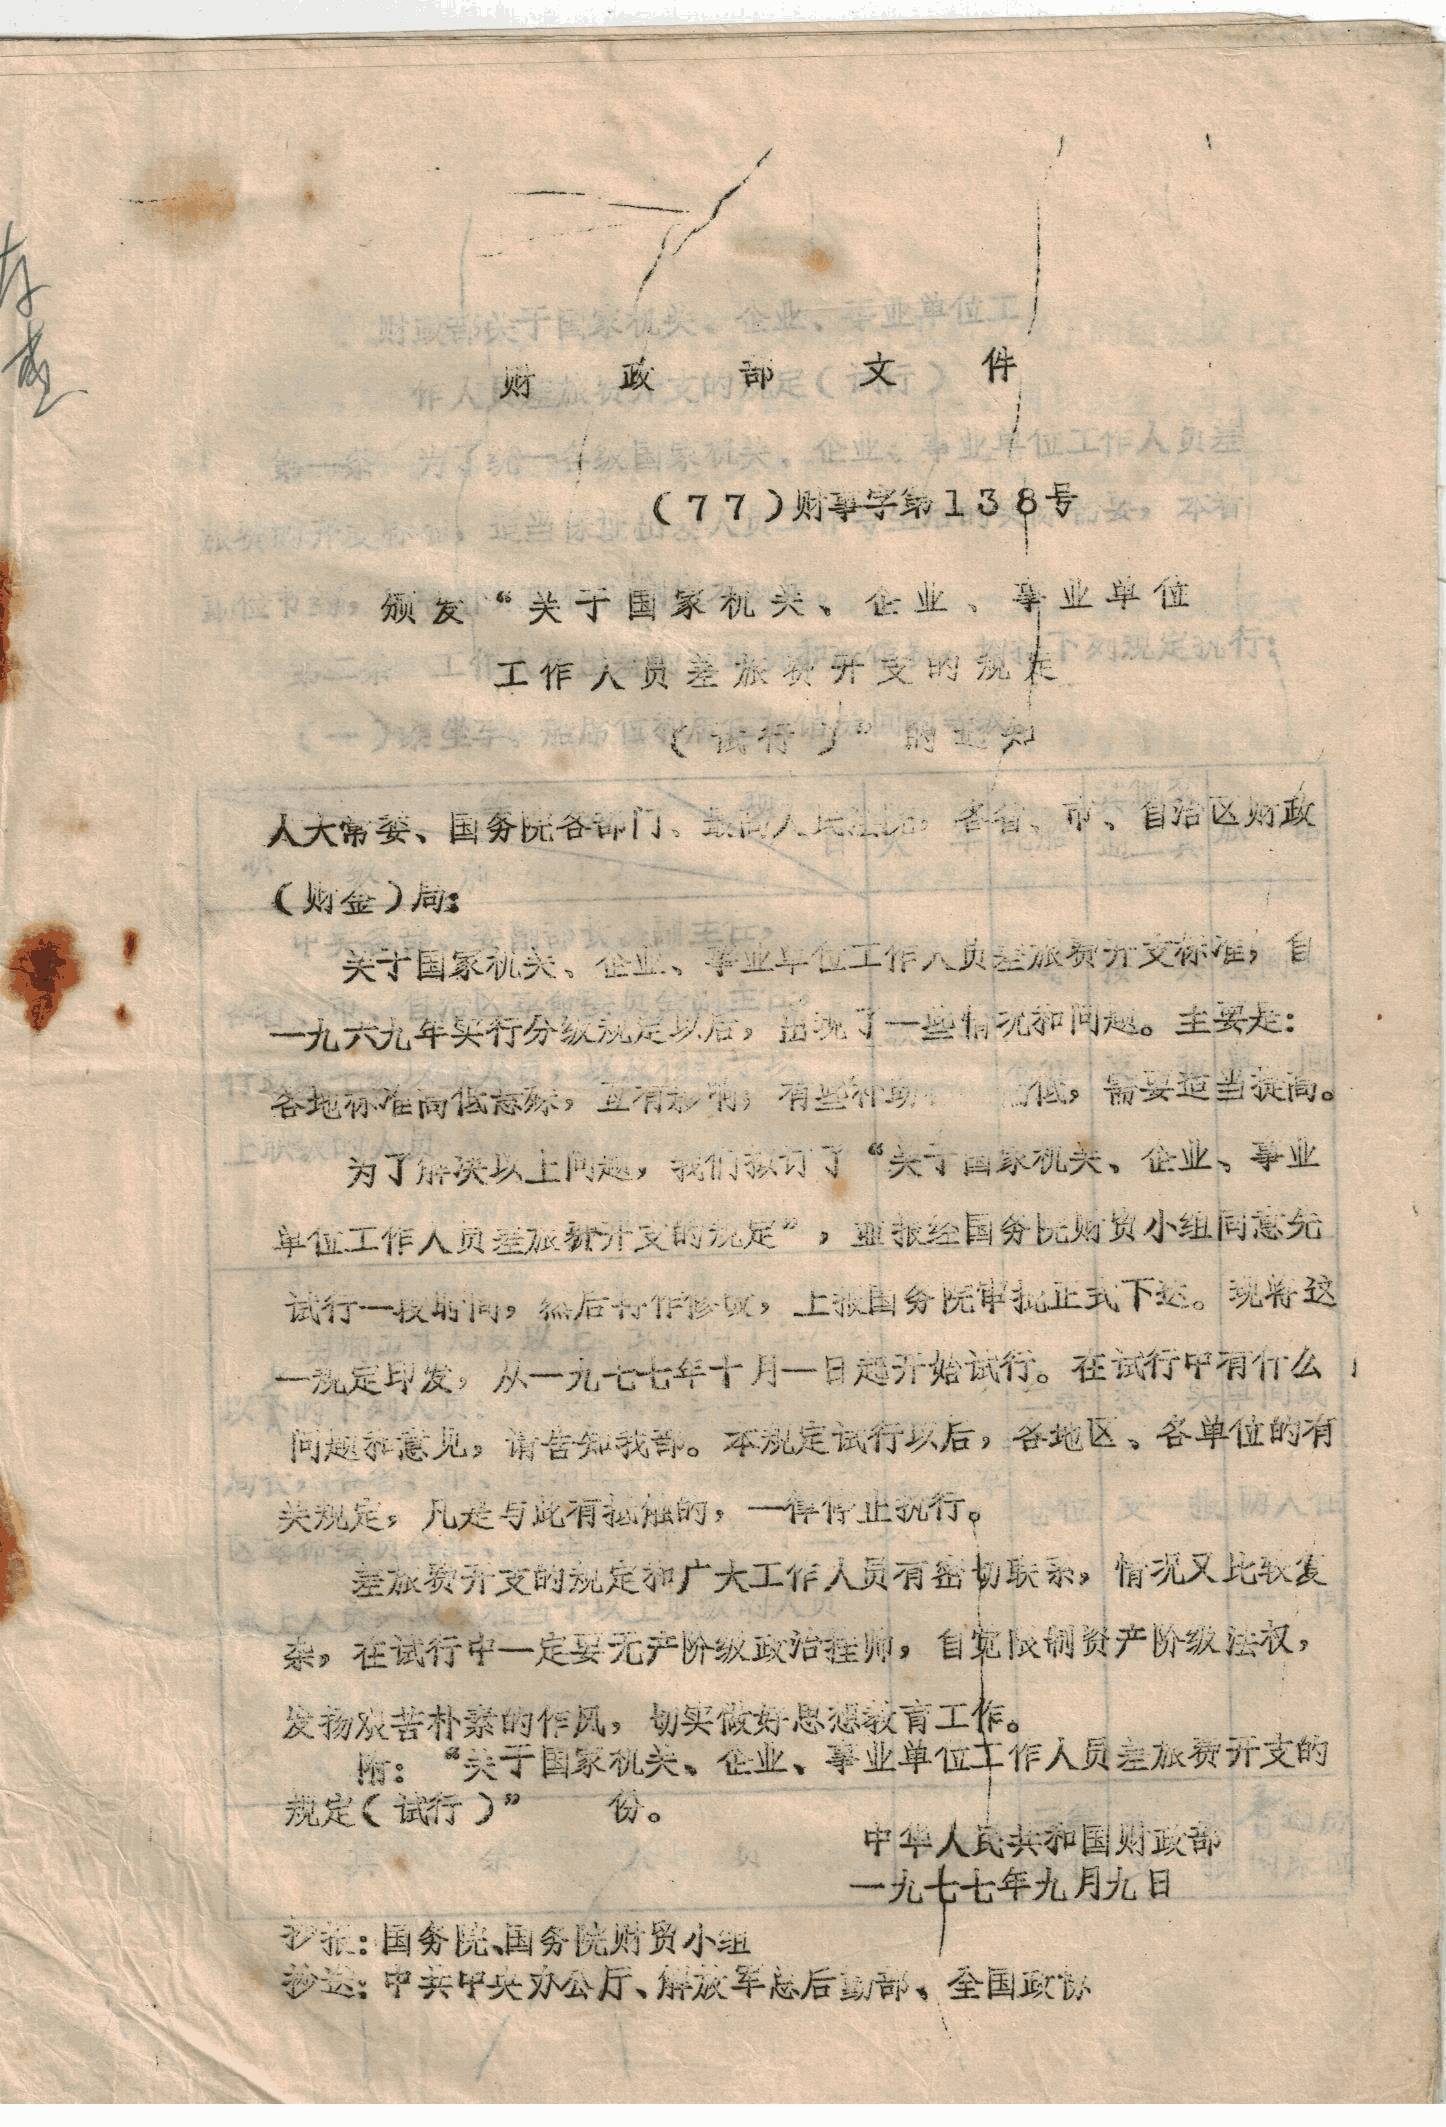 财政部文件
(77)财事字第138号
颁发“关于国家机关、企业、事业单位
工作人员差旅费开支的规定
(试行)”的通知
人大常委、国务院各部门、最高人民法院,各省、市、自治区财政
(财金)局:
关于国家机关、企业、事业单位工作人员差旅费开支标准,自
一九六九年实行分级规定以后,出现了一些情况和问题。主要是:
各地标准高低悬殊,互有影响,有些补助 低,需要适当提高。
为了解决以上问题,我们拟订了“关于国家机关、企业、事业
单位工作人员差旅费开支的规定”,并报经国务院财贸小组同意先
试行一段时间,然后再作修改,上报国务院审批正式下达。现将这
一规定印发,从一九七七年十月一日起开始试行。在试行中有什么
问题和意见,请告知我部。本规定试行以后,各地区、各单位的有
关规定,凡是与此有抵触的,一律停止执行。
差旅费开支的规定和广大工作人员有密切联系,情况又比较复
杂,在试行中一定要无产阶级政治挂帅,自觉限制资产阶级法权,
发扬艰苦朴素的作风,切实做好思想教育工作。
附:“关于国家机关、企业、事业单位工作人员差旅费开支的
规定(试行)” 份。
中华人民共和国财政部
一九七七年九月九日
抄报:国务院、国务院财贸小组
抄送:中共中央办公厅、解放军总后勤部、全国政协